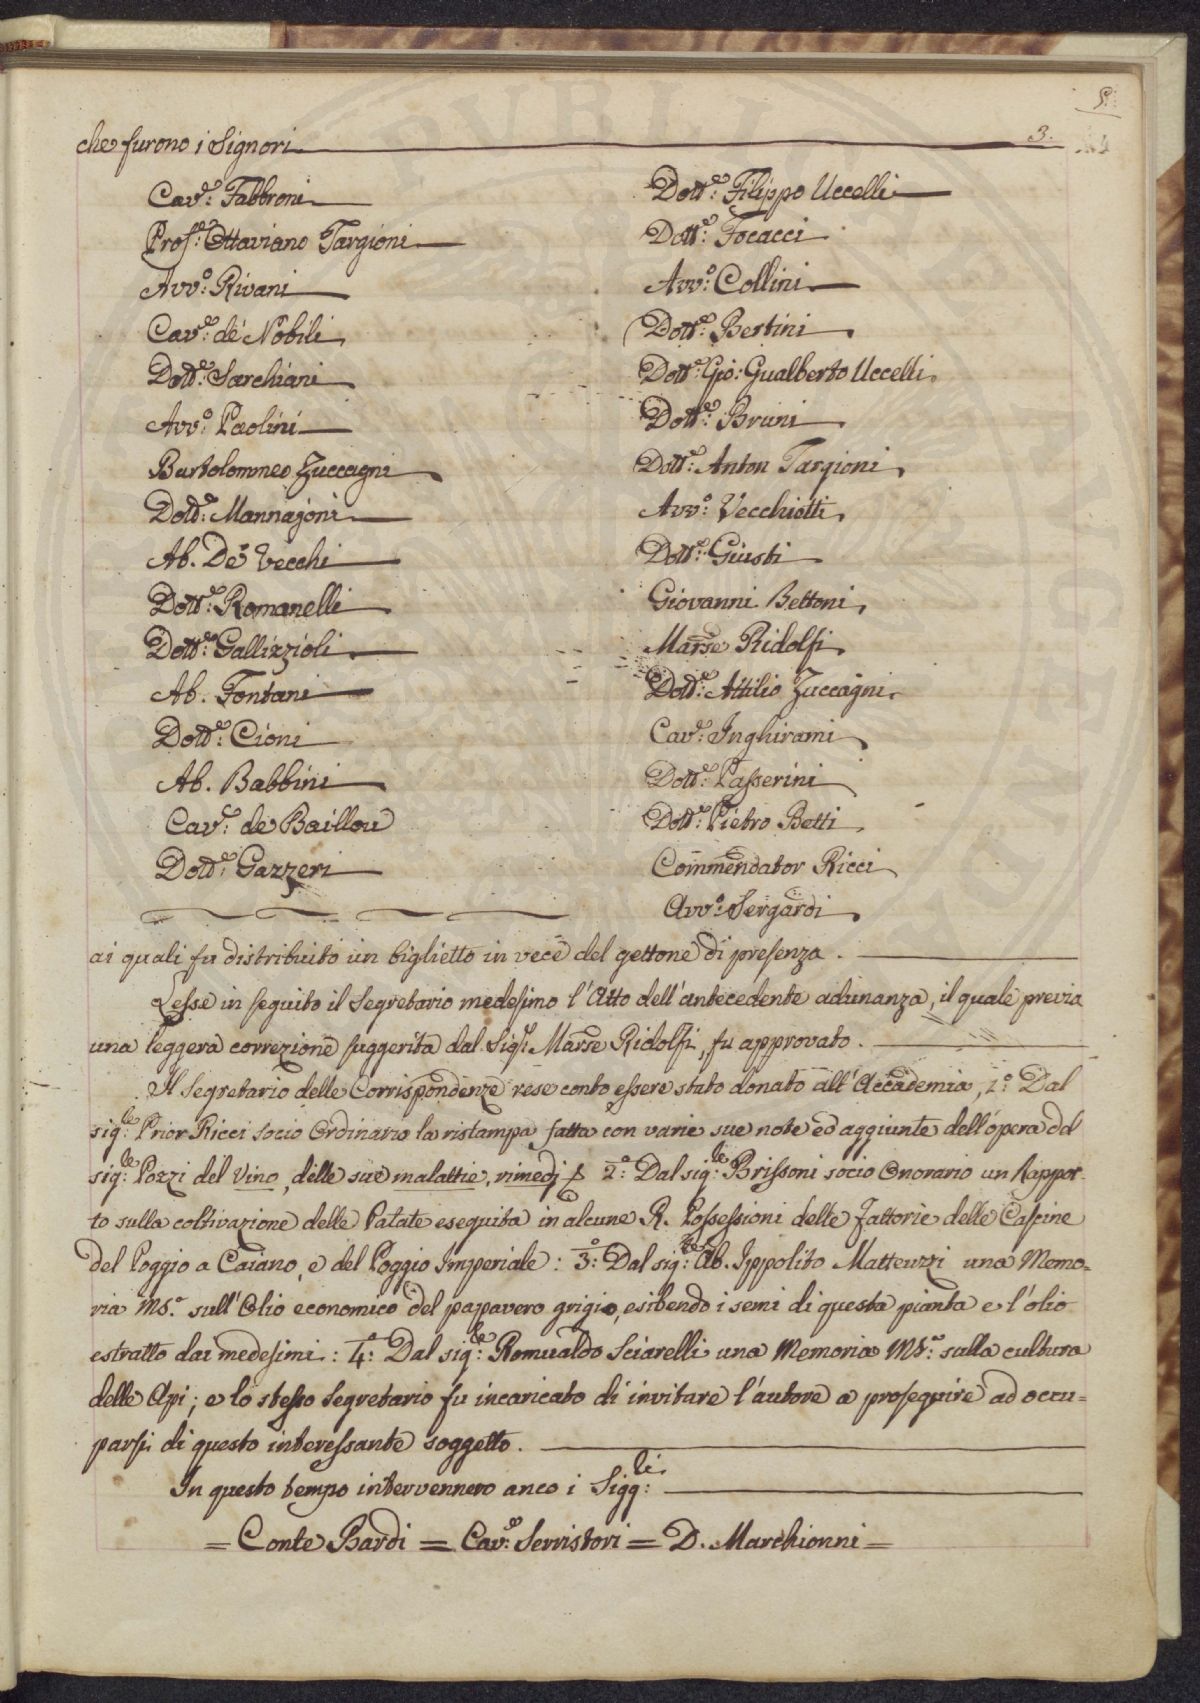 5.
3.
che furono i Signori
Cav.e: Fabbroni
Prof.e: Ottaviano Targioni
Avv.o: Rivani
Cav.e: de' Nobili
Dott.e: Sarchiani
Avv.o: Paolini
Bartolommeo Zuccagni
Dott.e: Mannajoni
Ab. De' Vecchi
Dott.e: Romanelli
Dott.e: Gallizzioli
Ab. Fontani
Dott.e: Cioni
Ab. Babbini
Cav.e: de Baillou
Dott.e: Gazzeri
Dott.e: Filippo Uccelli
Dott.e: Focacci
Avv.o: Collini
Dott.e: Bertini
Dott.e: Gio: Gualberto Uccelli
Dott.e: Bruni
Dott.e: Anton Targioni
Avv.o: Vecchietti
Dott.e: Giusti
Giovanni Bettoni
Marse Ridolfi
Dott.e: Attilio Zuccagni
Cav.e: Inghirami
Dott.e: Passerini
Dott.e: Pietro Betti
Commendator Ricci
Avv.o: Sergardi
ai quali fu distribuito un biglietto in vece del gettone di presenza.
Lesse in seguito il Segretario medesimo l'Atto dell'antecedente adunanza, il quale previa
una leggera correzione suggerita dal Sig.r: Marse Ridolfi, fu approvato.
Il Segretario delle Corrispondenze rese conto essere stato donato all'Accademia, 1.o Dal
sig.le: Prior Ricci socio Ordinario la ristampa fatta con varie sue note ed aggiunte dell'opera del
sig.le: Pozzi del Vino, delle sue malattie, rimedj 2.o Dal sig.le: Brissoni socio Onorario un Rappor-
to sulla coltivazione delle Patate eseguita in alcune R. Possessioni delle Fattorie delle Cascine
del Poggio a Caiano, e del Poggio Imperiale: 3.o: Dal sig.re: Ab. Ippolito Matteuzzi una Memo=
ria Ms.a sull'Olio economico del papavero grigio, esibendo i semi di questa pianta e l'olio
estratto dai medesimi: 4.o: Dal sig.le: Romualdo Sciarelli una Memoria Ms.a sulla cultura
delle Api; e lo stesso Segretario fu incaricato di invitare l'autore a proseguire ad occu=
parsi di questo interessante soggetto.
In questo tempo intervennero anco i Sigg.ri:
= Conte Bardi = Cav.e: Serristori = D. Marchionni =